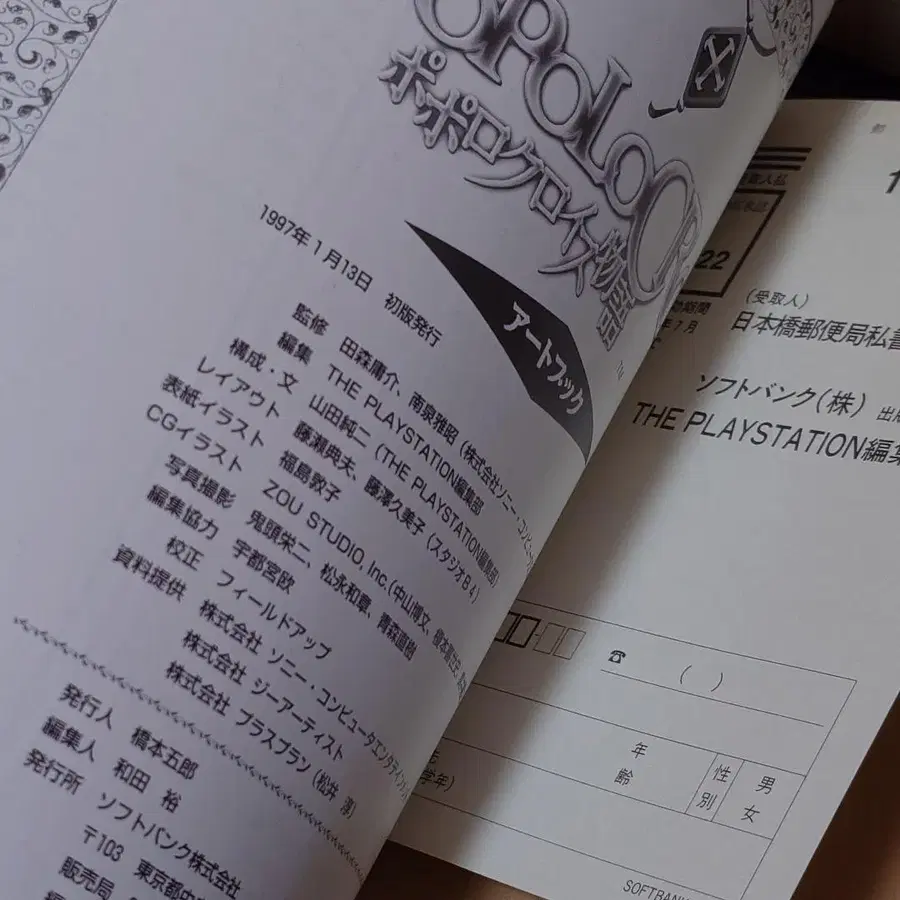 OPOLOCR
ポポロクロイス物語
アートブック
1997年1月13日 初版発行
監修 田森庸介、南泉雅昭(株式会社ソニー・コンピュ
編集 THE PLAYSTATION編集部
構成・文 山田純二(THE PLAYSTATION編集部)
レイアウト 藤瀬典夫、藤澤久美子(スタジオB4)
表紙イラスト 福島敦子
CGイラスト ZOU STUDIO, Inc.(中山博文、
写真撮影 鬼頭栄二、松永和章、青森直樹
編集協力 宇都宮欧
校正 フィールドアップ
資料提供 株式会社 ソニー・コンピュータエンタテインメ
株式会社 ジーアーティスト
株式会社 プラスプラン(松井 淳)
発行人 橋本五郎
編集人 和田 裕
発行所 ソフトバンク株式会社
〒103 東京都中
販売局
取人払
22
期間
年7月
(受取人)
日本橋郵便局私書
ソフトバンク(株) 出版
THE PLAYSTATION編集
☎ ( )
学年)
年齢
性別
男
女
SOFTBANK